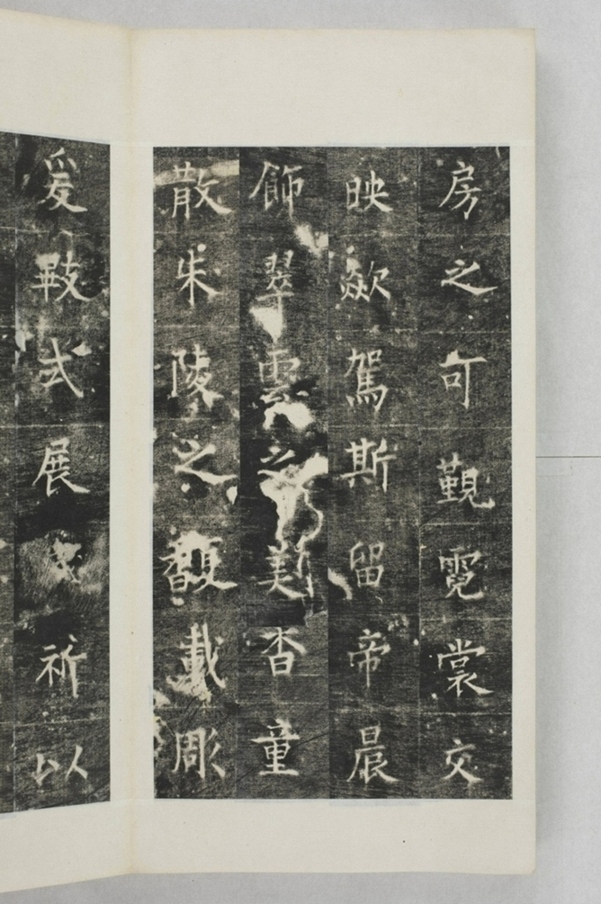 房之可覲霓裳交
映歘駕斯留帝晨
飾翠雲之美香童
散朱陵之馥載彫
爰式展祈以